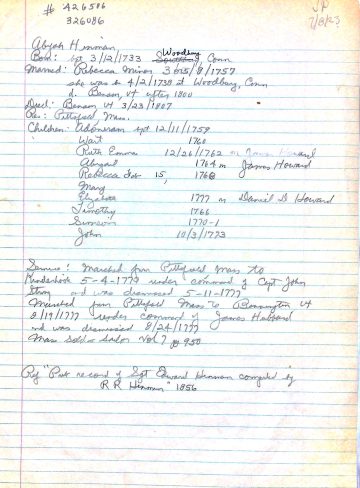 # 426506
326086
JP
7/8/83
Abijah Hinman,
Woodbury
Born: bpt 3/12/1733 Southbury Conn
Married: Rebecca Minor 3 /8/1757
she was b 4/2/1738 at Woodbury, Conn
d. Benson, Vt after 1800
Died: Benson, Vt 3/23/1807
Re.: Pittsfield, Mass.
Children: Adoniram bpt 12/11/1759
Wait 1760
Ruth Emma 12/26/1762 m Howard
Abigail 1764 m James Howard
Rebecca Feb 15, 1768
Mary
Elizabeth 1777 m Daniel D Howard
Timothy 1766
Simeon 1770-1
John 10/3/1773
Service: Marched from Pittsfield Mass to
Kinderhook 5-4-1777 under command of Capt John
Strong and was dismissed 5-11-1777
Marched from Pittsfield Mass to Bennington Vt
8/19/1777 under command of James Hubbard
and was dismissed 8/24/1777
Mass Sold & Sailor Vol 7 p 950
Ref "Part record of Sgt Edward Hinman compiled by
R R Hinman" 1856